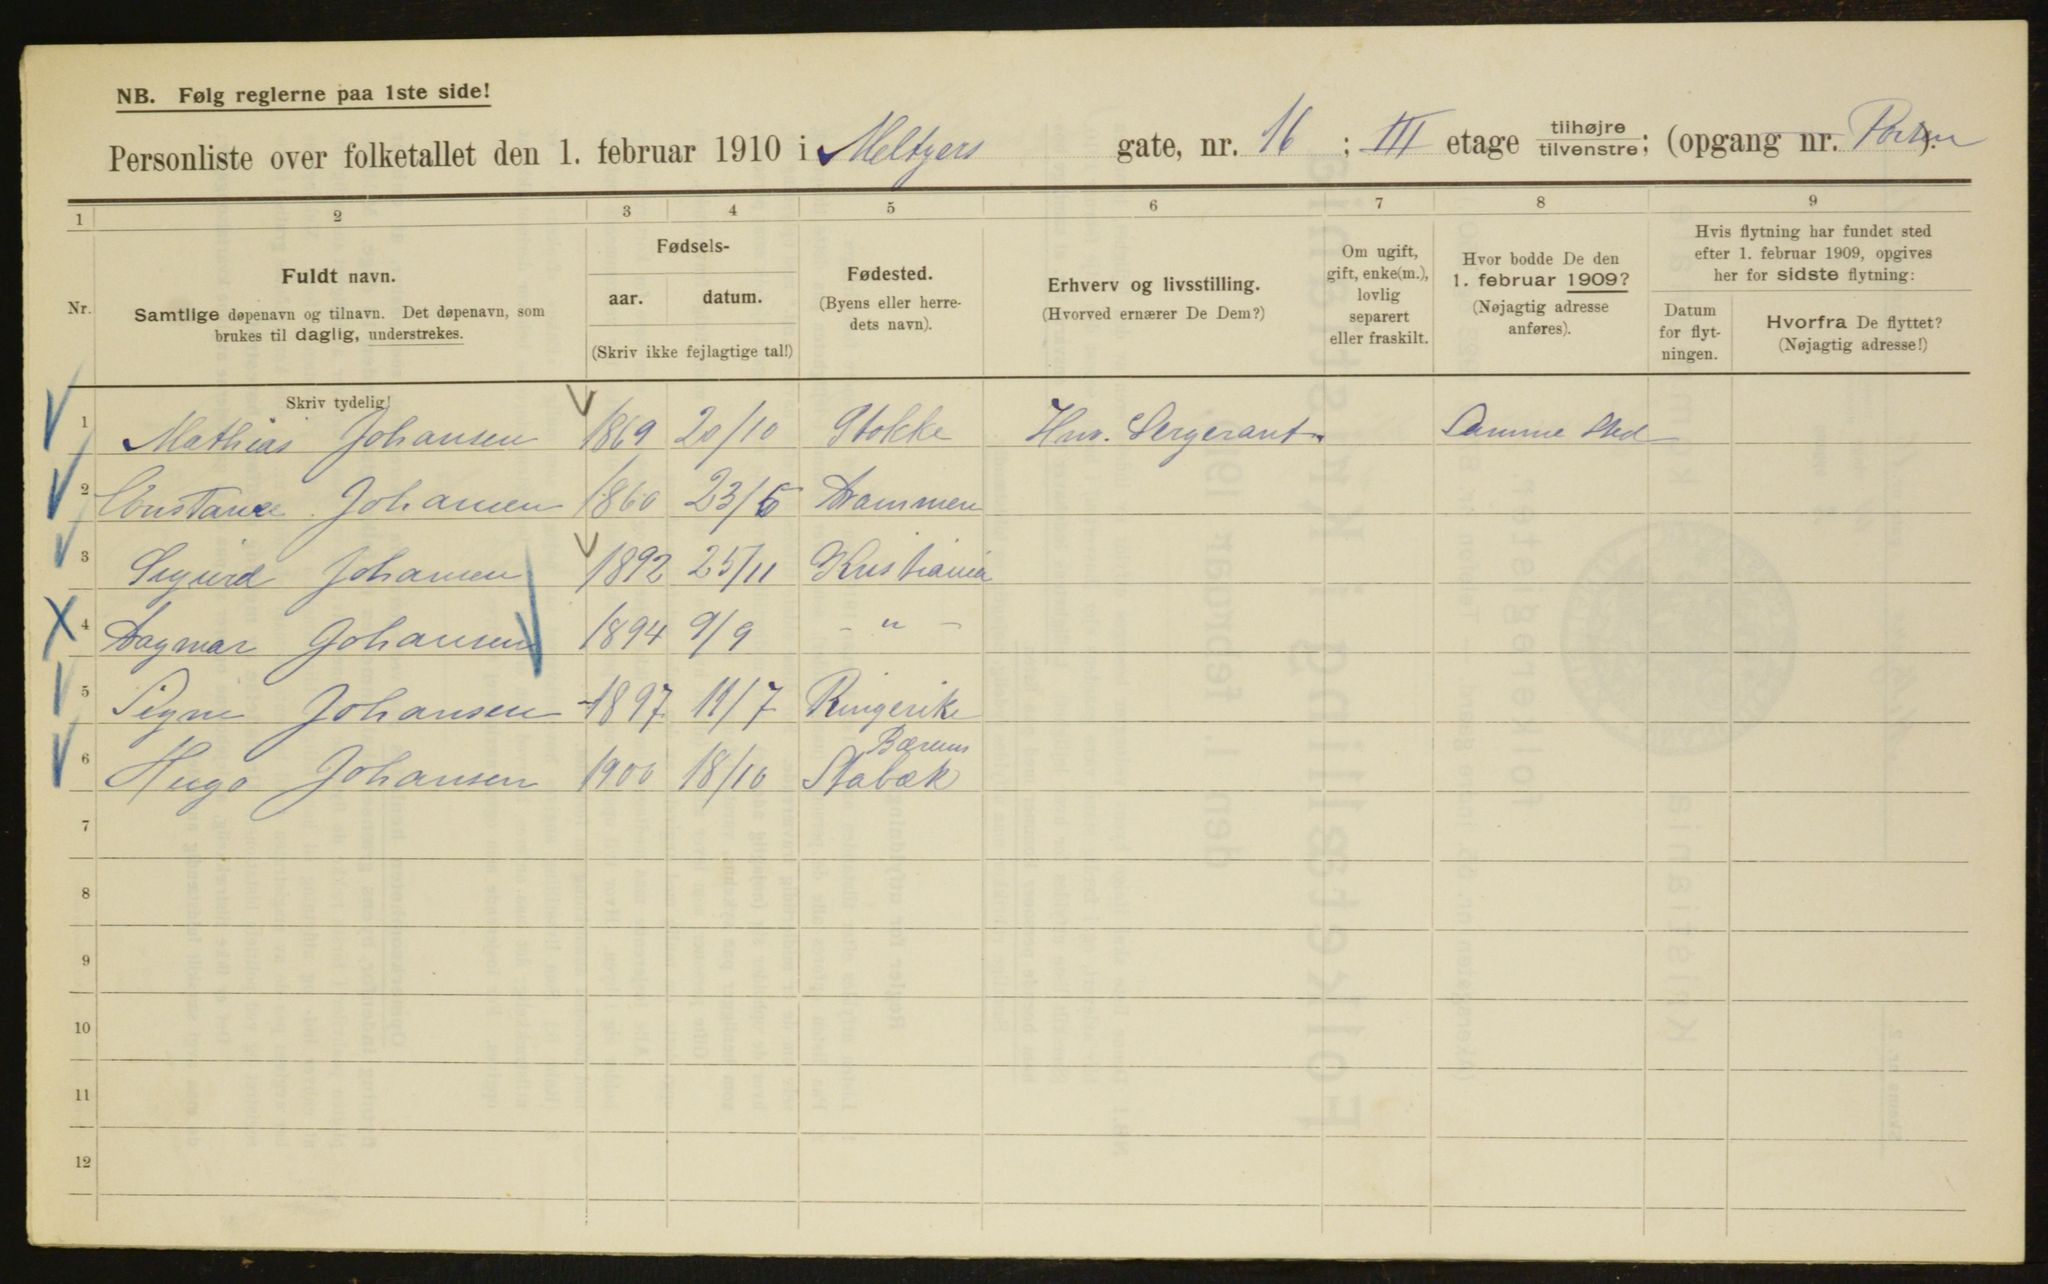 NB. Følg reglerne paa 1ste side!
Personliste over folketallet den 1. februar 1910 i Meltzers gate, nr. 16 ; III etage tilhøjre tilvenstre; (opgang nr. Porten ).
1 2 3 4 5 6 7 8 9
Nr.
Fuldt navn.
Samtlige døpenavn og tilnavn. Det døpenavn, som
brukes til daglig, understrekes.
Fødsels-
aar. datum.
(Skriv ikke fejlagtige tal!)
Fødested.
(Byens eller herre-
dets navn).
Erhverv og livsstilling.
(Hvorved ernærer De Dem?)
Om ugift,
gift, enke(m.),
lovlig
separert
eller fraskilt.
Hvor bodde De den
1. februar 1909?
(Nøjagtig adresse
anføres).
Hvis flytning har fundet sted
efter 1. februar 1909, opgives
her for sidste flytning:
Datum
for flyt-
ningen.
Hvorfra De flyttet?
(Nøjagtig adresse!)
Skriv tydelig!
1 Mathias Johansen 1869 20/10 Stokke Hmv. Sergeant. Samme Sted
2 Constance Johansen 1860 23/6 Drammen
3 Sigurd Johansen 1892 25/11 Kristiania
4 Dagmar Johansen 1894 9/9 - " -
5 Signe Johansen 1897 11/7 Ringerike
6 Hugo Johansen 1900 18/10 Bærum Stabæk
7
8
9
10
11
12